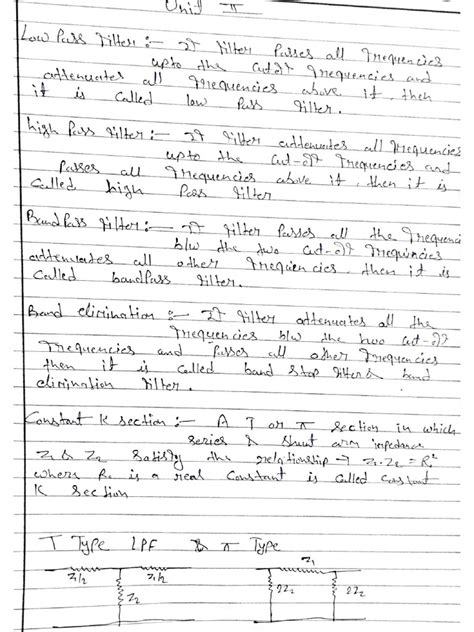 Unit - II
Low Pass Filter :- If filter Passes all frequencies
upto the cut-off frequencies and
attenuates all frequencies above it, then
it is called low Pass filter.
high Pass filter :- If filter attenuates all frequencies
upto the cut-off frequencies and
Passes all frequencies above it, then it is
called high Pass filter
Band Pass filter :- If filter Passes all the frequenci
b/w the two cut-off frequencies
attenuates all other frequencies, then it is
called bandPass filter.
Band elimination :- If filter attenuates all the
frequencies b/w the two cut-off
frequencies and Passes all other frequencies
then it is called band stop filter & band
elimination filter.
Constant K section :- A T or π section in which
series & shunt arm impedance
Z1 & Z2 satisfy the relationship → Z1.Z2 = R²
where is a real constant is called constant
K section
T Type LPF & π Type
Z1
Z1/2 Z1/2
Z2 2Z2 2Z2